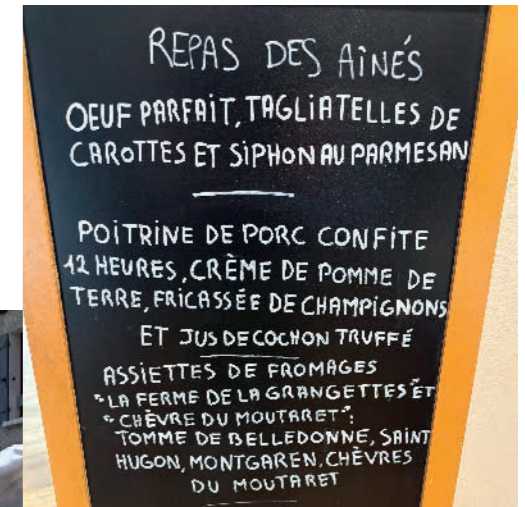 REPAS DES AÎNÉS
OEUF PARFAIT, TAGLIATELLES DE
CAROTTES ET SIPHON AU PARMESAN
POITRINE DE PORC CONFITE
12 HEURES, CRÈME DE POMME DE
TERRE, FRICASSÉE DE CHAMPIGNONS
ET JUS DE COCHON TRUFFÉ
ASSIETTES DE FROMAGES
"LA FERME DE LA GRANGETTES" ET
"CHÈVRE DU MOUTARET":
TOMME DE BELLEDONNE, SAINT
HUGON, MONTGAREN, CHÈVRES
DU MOUTARET